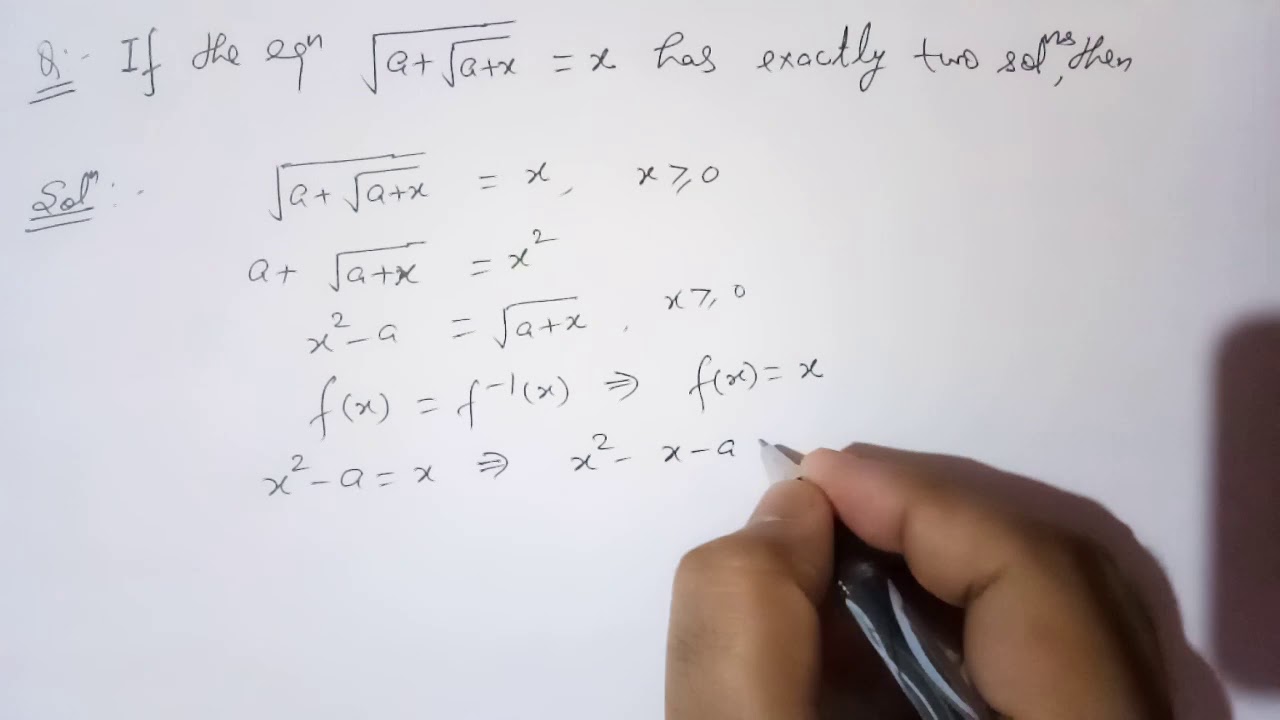 Q:- If the eqⁿ √(a+√(a+x)) = x has exactly two solⁿˢ, then
Solⁿ:- √(a+√(a+x)) = x, x ≥ 0
a + √(a+x) = x²
x² - a = √(a+x), x ≥ 0
f(x) = f⁻¹(x) ⇒ f(x) = x
x² - a = x ⇒ x² - x - a